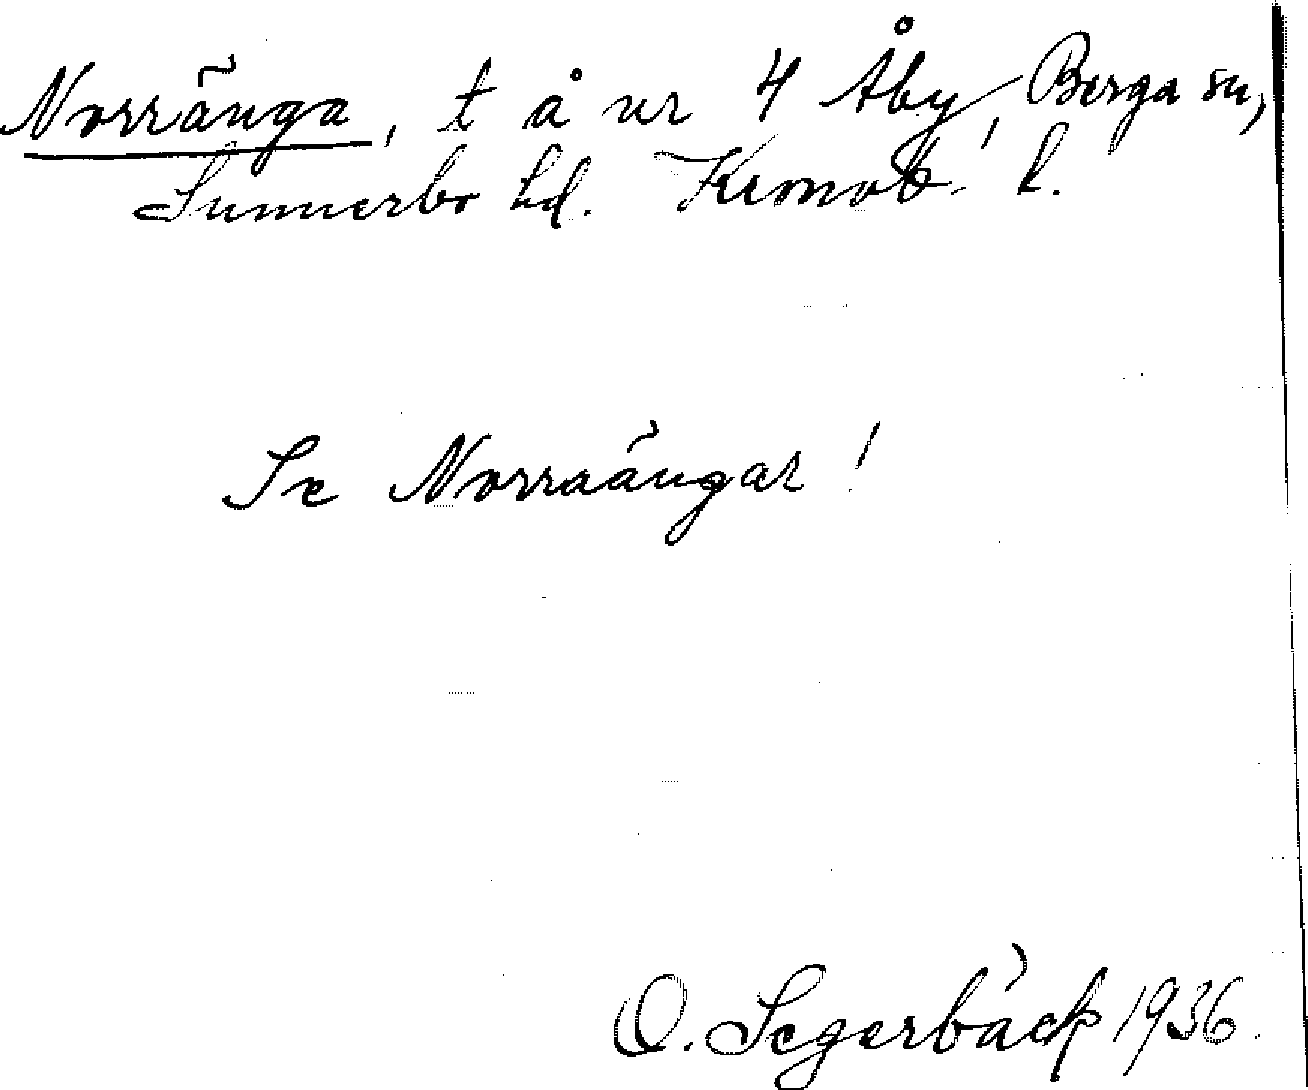 Norränga, t å ur 4 Åby, Berga sn,
Sunnerbo hd. Kronob. l.
Se Norraängar!
O. Segerbäck 1936.